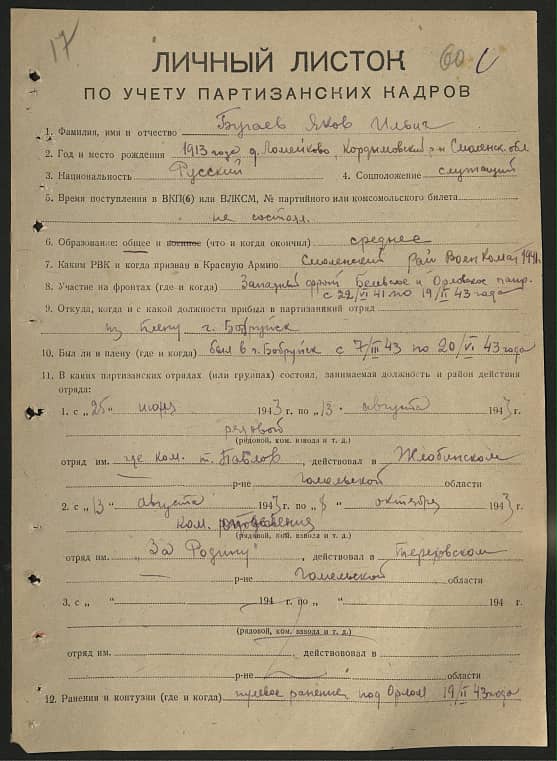 17
60
ЛИЧНЫЙ ЛИСТОК
ПО УЧЕТУ ПАРТИЗАНСКИХ КАДРОВ
1. Фамилия, имя и отчество Бугаев Яков Ильич
2. Год и место рождения 1913 года д. Ломейково, Кардымовский р-н Смоленск. обл
3. Национальность Русский 4. Соцположение служащий
5. Время поступления в ВКП(б) или ВЛКСМ, № партийного или комсомольского билета
не состоял.
6. Образование: общее и военное (что и когда окончил) среднее
7. Каким РВК и когда призван в Красную Армию Смоленский Рай Воен Комат 1941г.
8. Участие на фронтах (где и когда) Западный фронт Белевское и Орловское напр.
с 22/VI 41 по 19/II 43 года
9. Откуда, когда и с какой должности прибыл в партизанский отряд
из плену г. Бобруйск
10. Был ли в плену (где и когда) был в г. Бобруйск с 7/III 43 по 20/VI 43 года
11. В каких партизанских отрядах (или группах) состоял, занимаемая должность и район действия
отряда:
1. с „25“ июня 1943 г. по „13“ августа 1943 г.
рядовой
(рядовой, ком. взвода и т. д.)
отряд им. где ком. т. Павлов, действовал в Жлобинском
р-не Гомельской области
2. с „13“ августа 1943 г. по „8“ октября 1943 г.
ком. отделения
(рядовой, ком. взвода и т. д.)
отряд им. „За Родину“, действовал в Тереховском
р-не Гомельской области
3. с „ “ 194 г. по „ “ 194 г.
(рядовой, ком. взвода и т. д.)
отряд им. действововал в
р-не области
12. Ранения и контузии (где и когда) пулевое ранение под Орлом 19/II 43 года